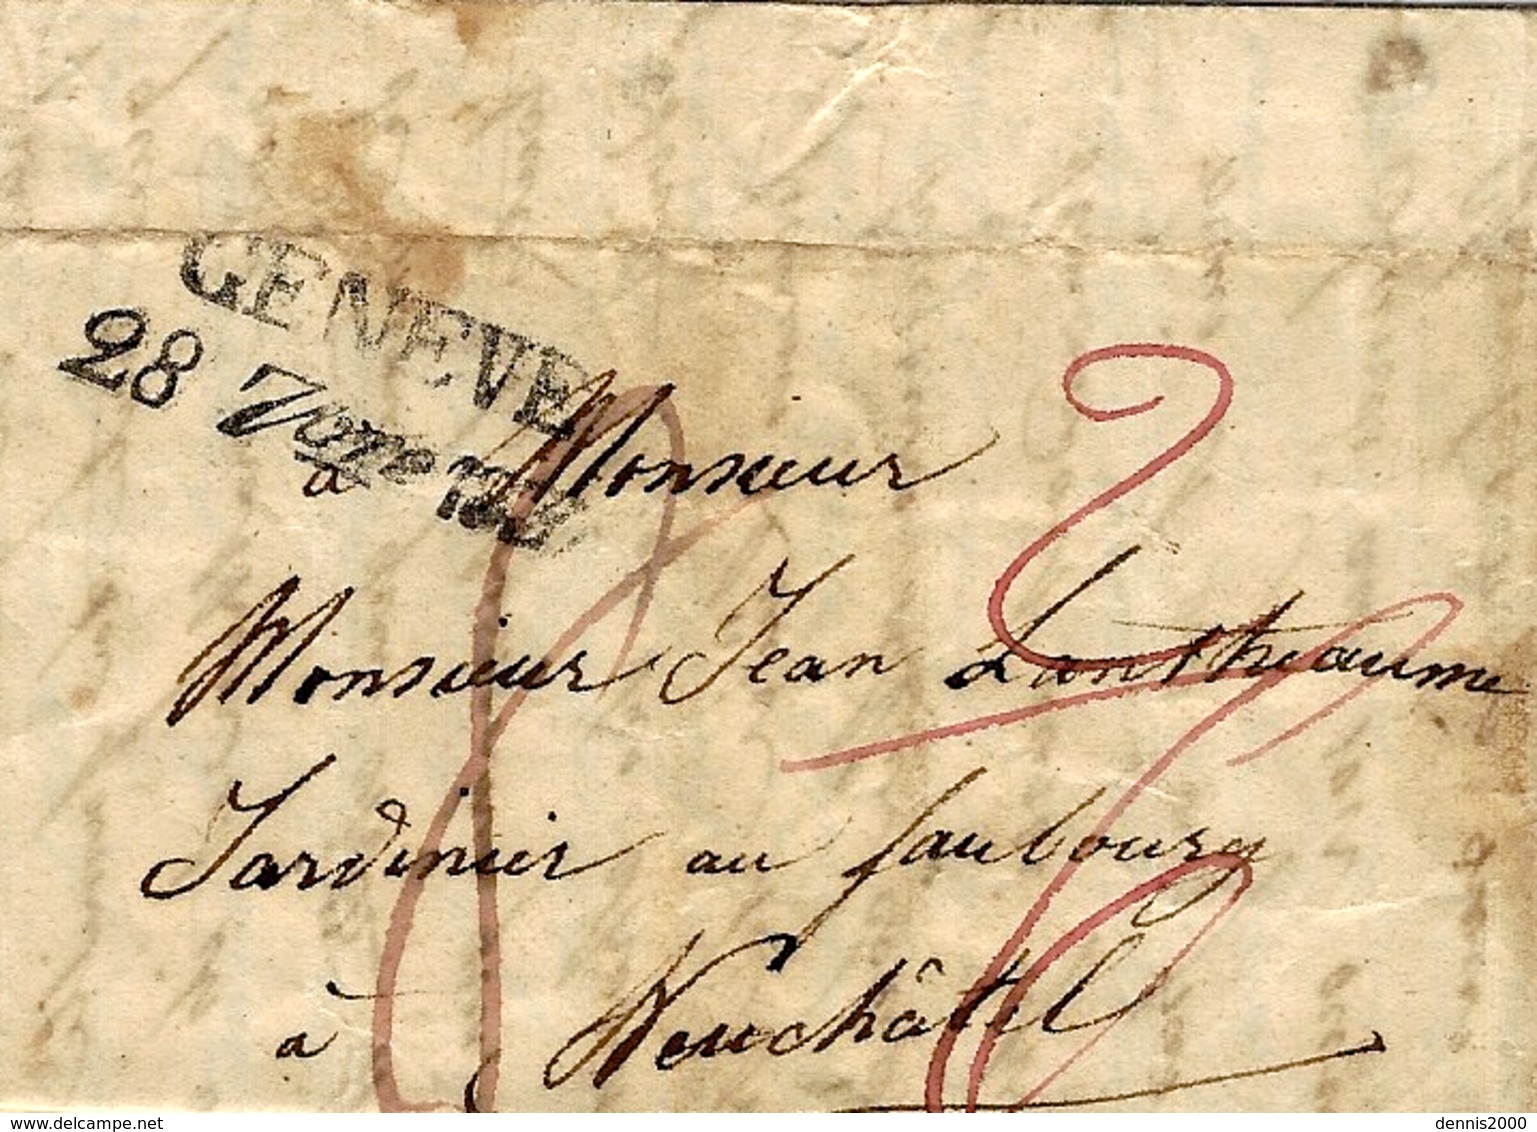 GENEVE
28
à Monsieur
Monsieur Jean Lantheaume
Jardinier au faubourg
à Neuchâtel
delcampe.net
dennis2000